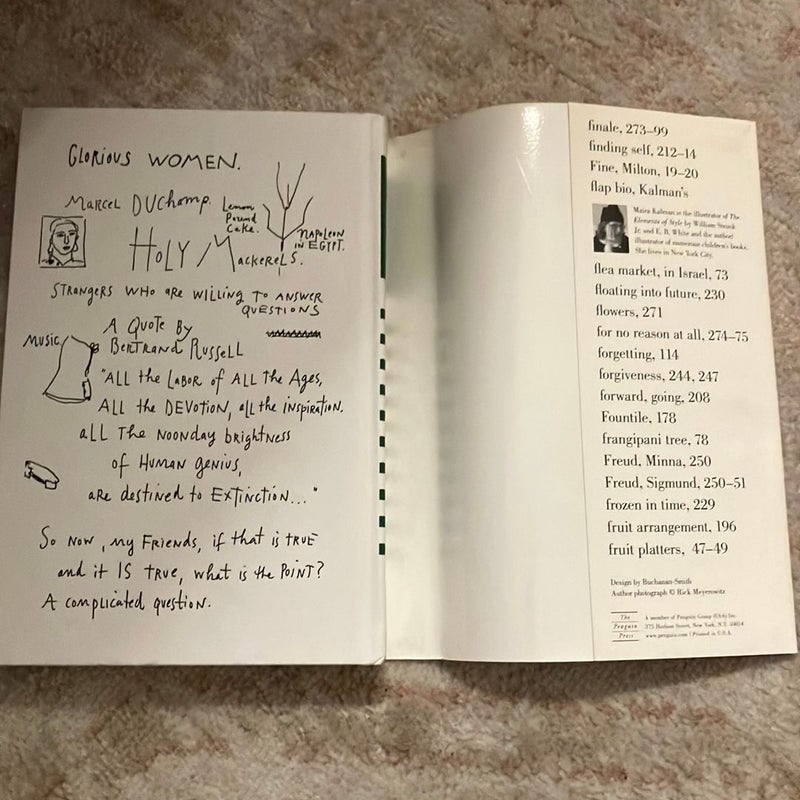 GLORIOUS WOMEN.
MARCEL DUCHAMP.
Lemon
Pound
Cake.
NAPOLEON
IN EGYPT.
HOLY MACKERELS.
STRANGERS WHO are WILLING TO ANSWER
QUESTIONS
MUSIC
A QUOTE BY
BERTRAND RUSSELL
"ALL the LABOR of ALL the AGES,
ALL the DEVOTION, all the inspiration,
all THE NOONday brightness
of HUMAN GENIUS,
are destined to EXTINCTION..."
So NOW, my FRIENDS, if that is TRUE
and it IS TRUE, what is the POINT?
A complicated question.
finale, 273–99
finding self, 212–14
Fine, Milton, 19–20
flap bio, Kalman's
Maira Kalman is the illustrator of The
Elements of Style by William Strunk
Jr. and E. B. White and the author/
illustrator of numerous children's books.
She lives in New York City.
flea market, in Israel, 73
floating into future, 230
flowers, 271
for no reason at all, 274–75
forgetting, 114
forgiveness, 244, 247
forward, going, 208
Fountile, 178
frangipani tree, 78
Freud, Minna, 250
Freud, Sigmund, 250–51
frozen in time, 229
fruit arrangement, 196
fruit platters, 47–49
Design by Buchanan-Smith
Author photograph © Rick Meyerowitz
The
Penguin
Press
A member of Penguin Group (USA) Inc.
375 Hudson Street, New York, N.Y. 10014
www.penguin.com | Printed in U.S.A.